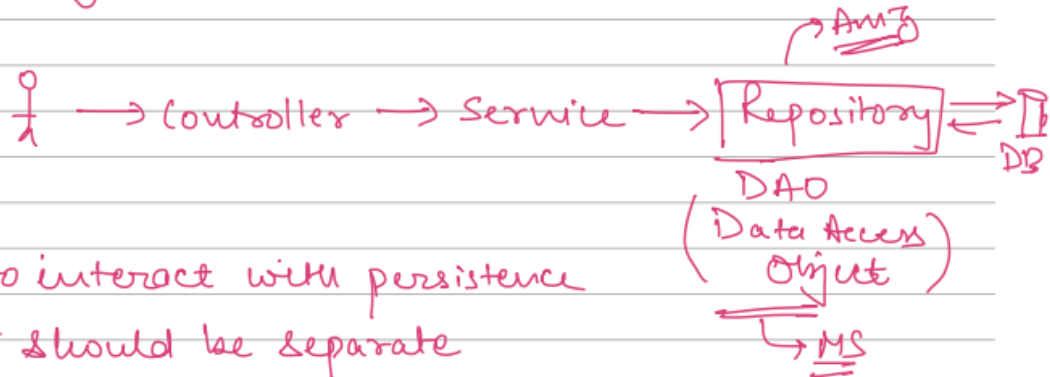 Amz
Controller → Service → Repository
DB
DAO
(Data Access
Object)
o interact with persistence
should be separate
MS